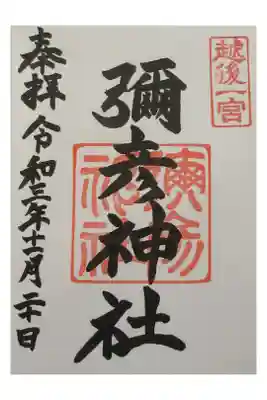 越後一宮
彌彦神社
奉拝 令和三年十一月二十日